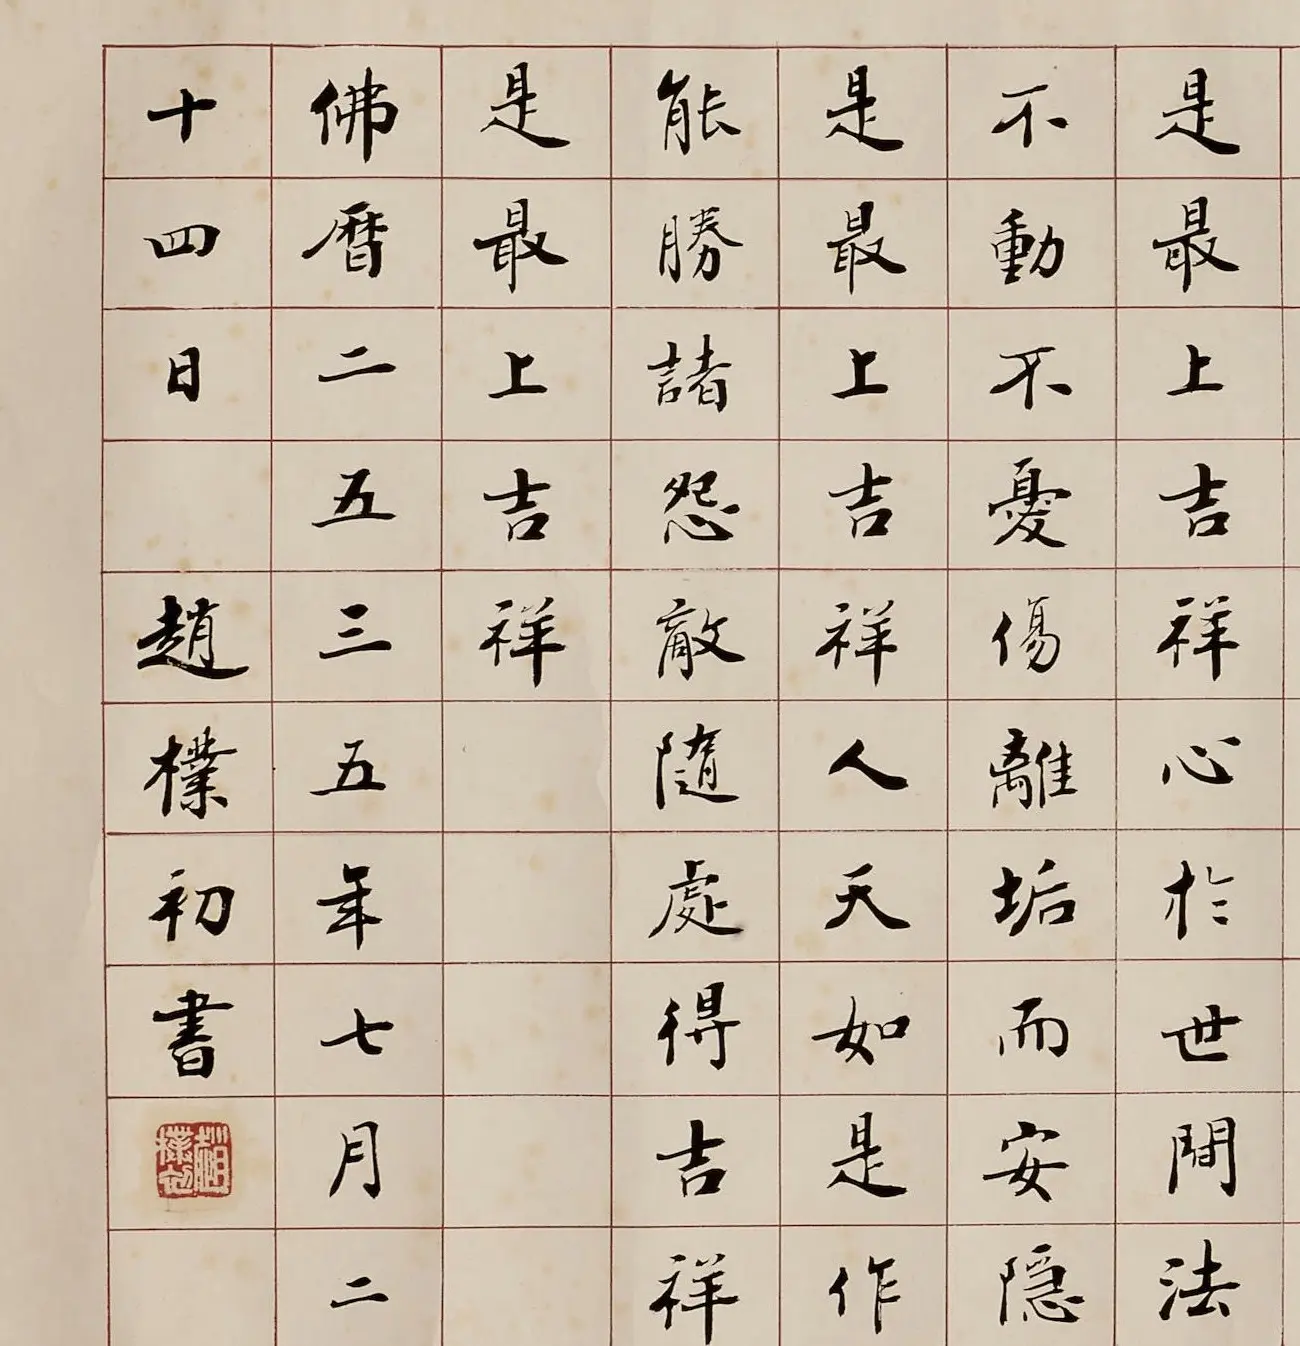 是最上吉祥心於世間法
不動不憂傷離垢而安隠
是最上吉祥人天如是作
能勝諸怨敵隨處得吉祥
是最上吉祥
佛曆二五三五年七月二
十四日 趙樸初書
趙樸初